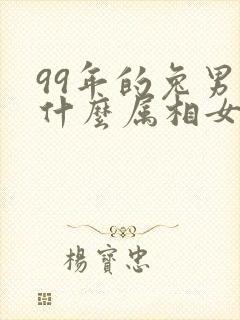 99年的兔男
什麼属相女
楊寶忠